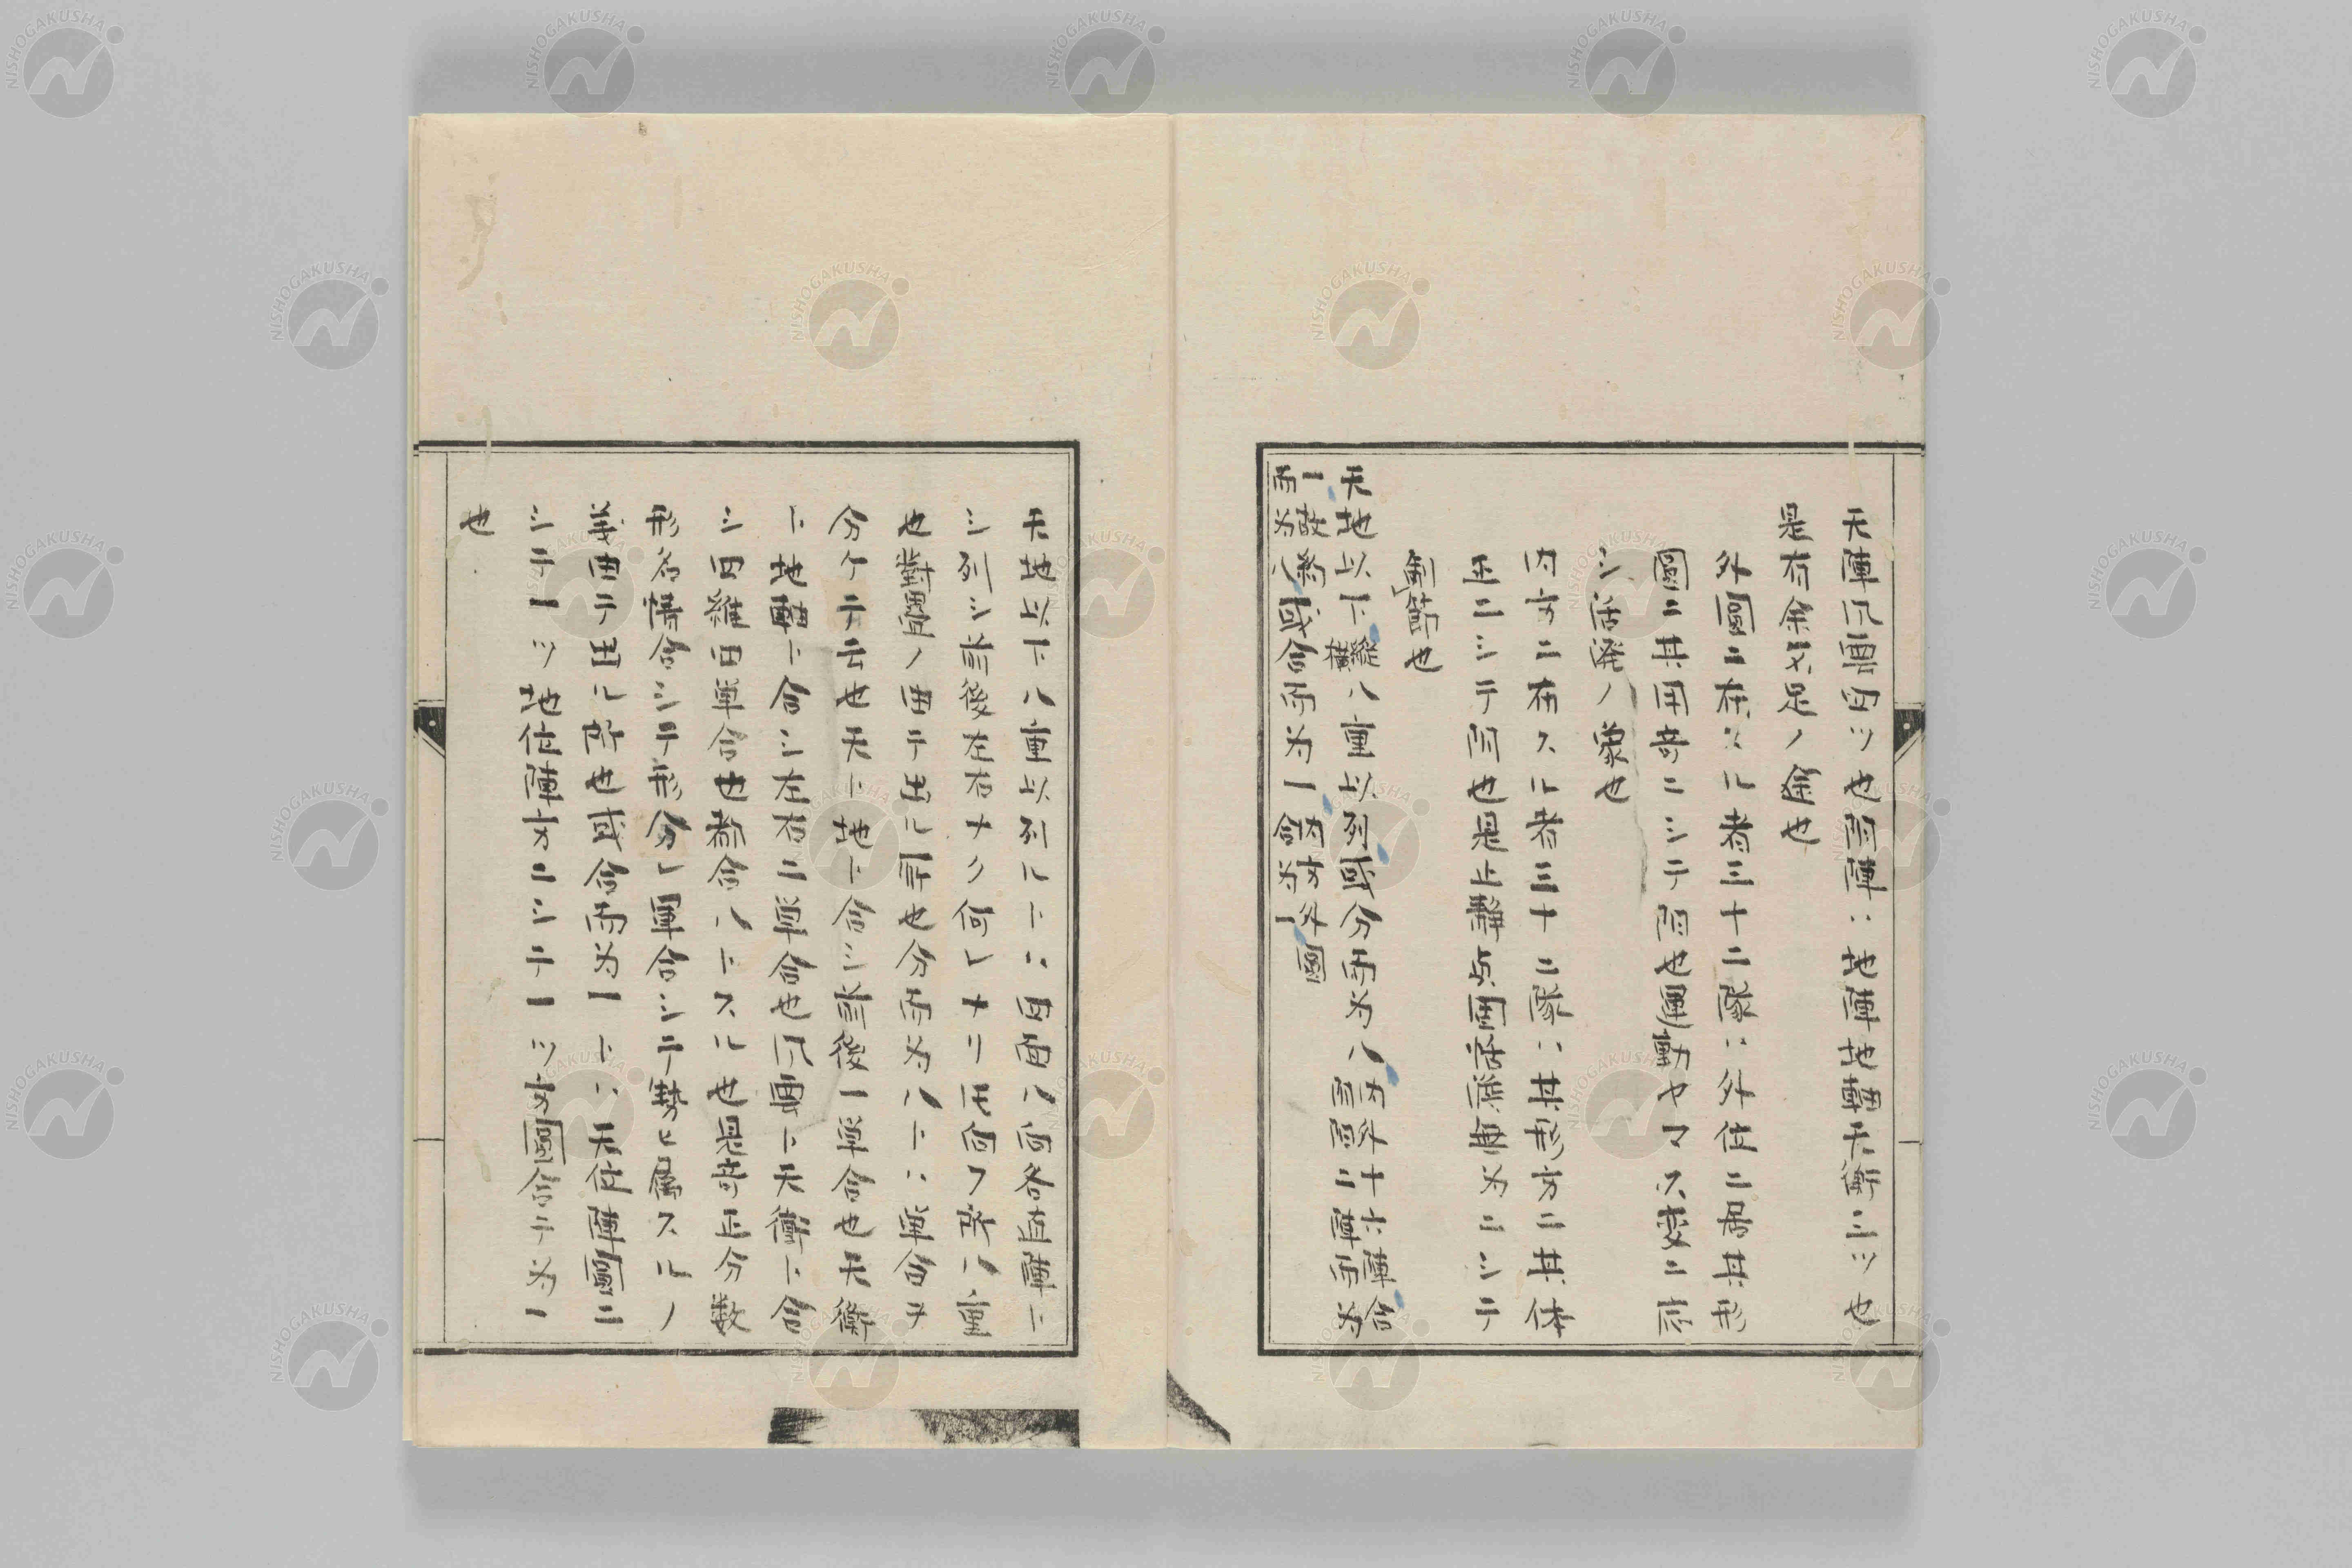 天陣風雲四ツ也陰陣ハ地陣地軸天衝三ツ也
是有余不足ノ余也
外圓ニ在スル者三十二隊ハ外位ニ居其形
圓ニ其用奇ニシテ陽也運動ヤマス変ニ応
シ活溌ノ象也
内方ニ在スル者三十二隊ハ其形方ニ其体
正ニシテ陰也是止静貞固活溌無為ニシテ
制節也
天地以下縱横八重以列或分而為八内外十六陣合陰陽二陣而為
一敵衆或合而為一内方外圓
而為八合為一
天地以下八重以列ルトハ四面八向各直陣ト
シ列シ前後左右ナク何レナリ氏向フ所八重
也對疊ノ由テ出ル所也分而為八トハ単合ヲ
分ケテ云也天ト地ト合シ前後一単合也天衝
ト地軸ト合シ左右ニ単合也風雲ト天衝ト合
シ四維四単合也都合八トスル也是奇正分数
形名備合シテ形分レ単合シテ勢ニ属スルノ
義由テ出ル所也或合而為一トハ天位陣圓ニ
シテ一ツ地位陣方ニシテ一ツ方圓合テ為一
也